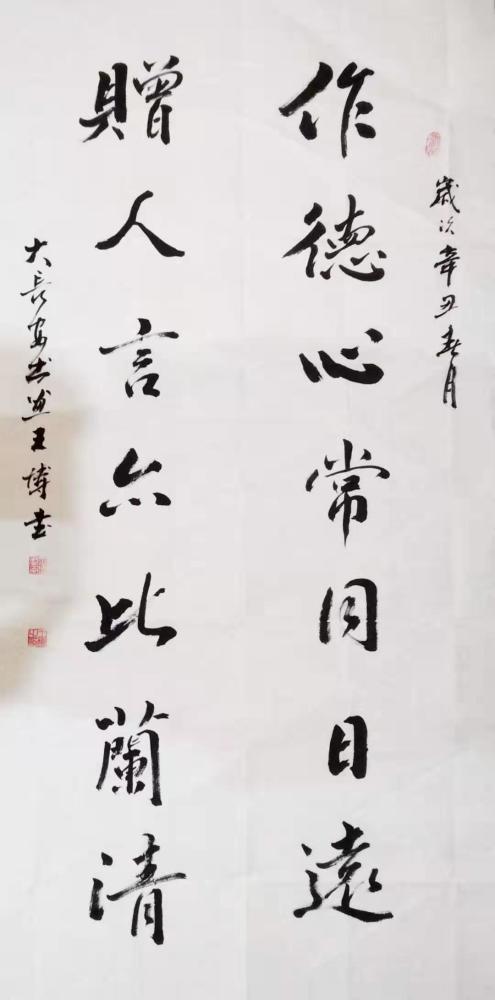 歲次辛丑春月
作德心常同日遠
贈人言亦比蘭清
大長安書道王博書